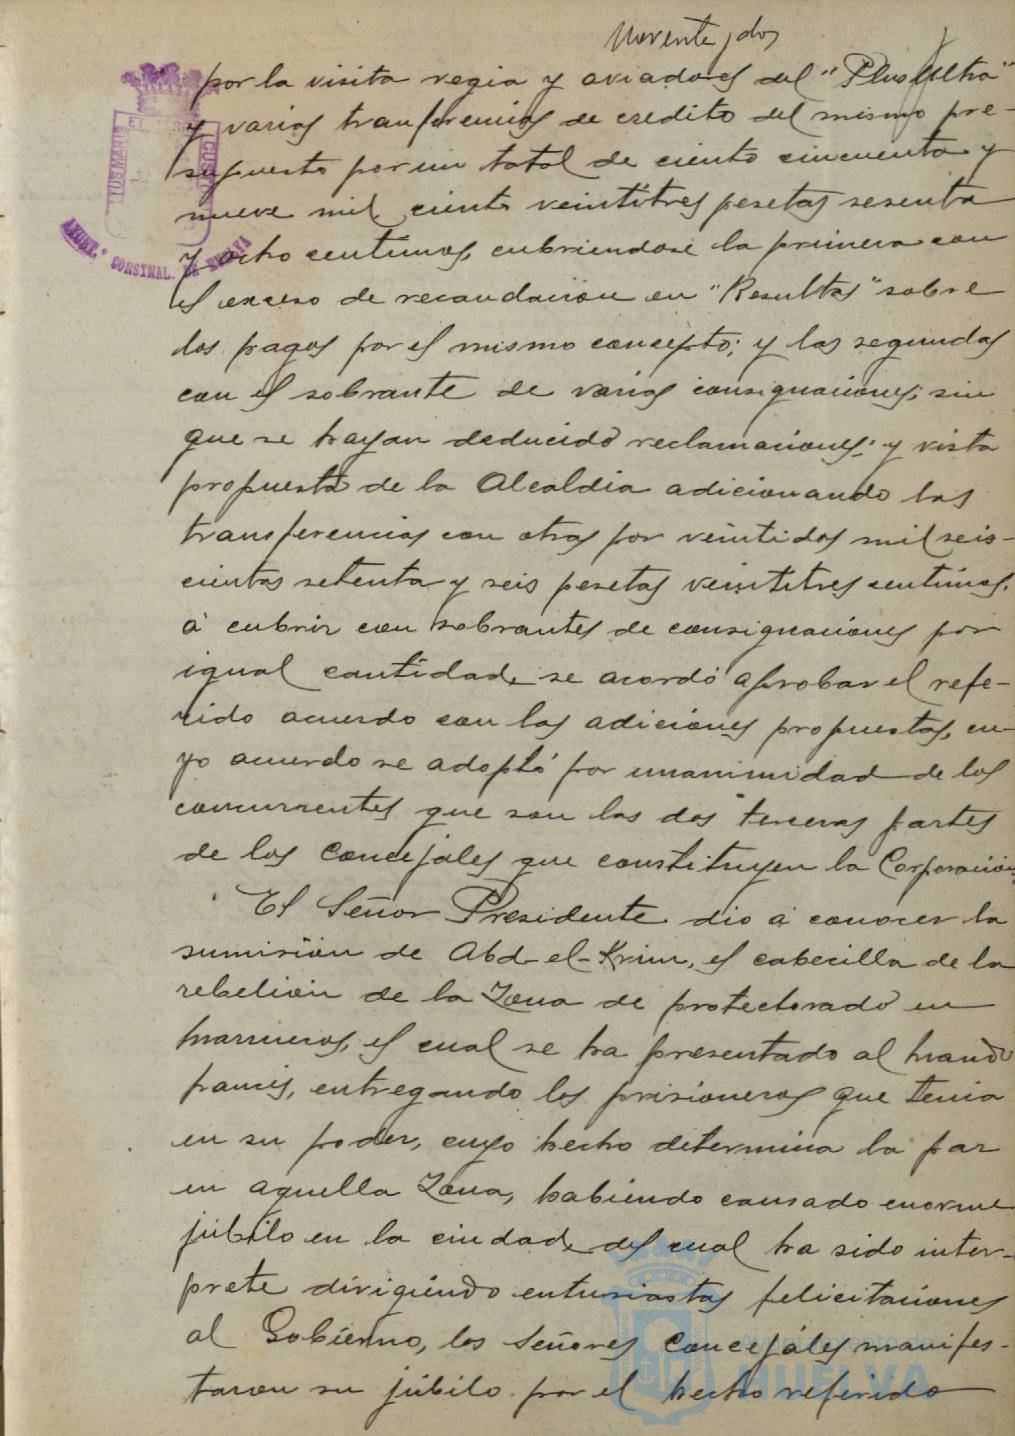 Noventa y dos
por la visita regia y aviadores del "Plus Ultra"
y varias transferencias de credito del mismo pre-
supuesto por un total de ciento cincuenta y
nueve mil ciento veintitres pesetas sesenta
y ocho centimos, cubriendose la primera con
el exceso de recaudacion en "Resultas" sobre
los pagos por el mismo concepto; y las segundas
con el sobrante de varias consignaciones; sin
que se hayan deducido reclamaciones; y vista
propuesta de la Alcaldia adicionando las
transferencias con otras por veintidos mil seis-
cientas setenta y seis pesetas veintitres centimos,
á cubrir con sobrantes de consignaciones por
igual cantidad, se acordó aprobar el refe-
rido acuerdo con las adiciones propuestas, cu-
yo acuerdo se adoptó por unanimidad de los
concurrentes que son las dos terceras partes
de los Concejales que constituyen la Corporación.
El Señor Presidente dio á conocer la
sumisión de Abd-el-Krim, el cabecilla de la
rebelión de la Zona de protectorado en
Marruecos, el cual se ha presentado al mando
francés, entregando los prisioneros que tenia
en su poder, cuyo hecho determina la paz
en aquella Zona, habiendo causado enorme
júbilo en la ciudad, del cual ha sido inter-
prete dirigiendo entusiastas felicitaciones
al Gobierno, los Señores Concejales manifes-
taron su júbilo por el hecho referido
AYUNT.º CONSTNAL. DE HUELVA
Ayuntamiento de
HUELVA